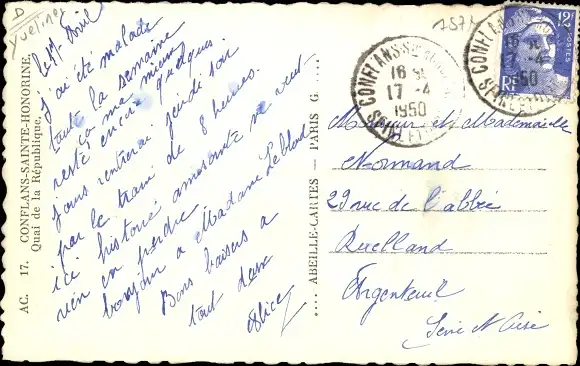 D
Yvelines
AC. 17. CONFLANS-SAINTE-HONORINE
Quai de la République.
ABEILLE-CARTES — PARIS
Avril
j'ai été malade
toute la semaine
ça va mieux
reste encore quelques
jours rentrerai jeudi soir
par le train de 8 heures.
ici histoire amusante ne veut
rien en perdre
bonjour a Madame Leblond
Bons baisers a
tout deux
Alice
CONFLANS-STE-HONORINE
16 H
17 - 4
1950
SEINE-ET-OISE
12F
Monsieur et Mademoiselle
Normand
29 rue de l'abbé
Ruelland
Argenteuil
Seine et Oise